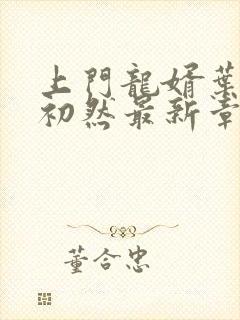 上門龍婿葉
初然最新章
董合忠